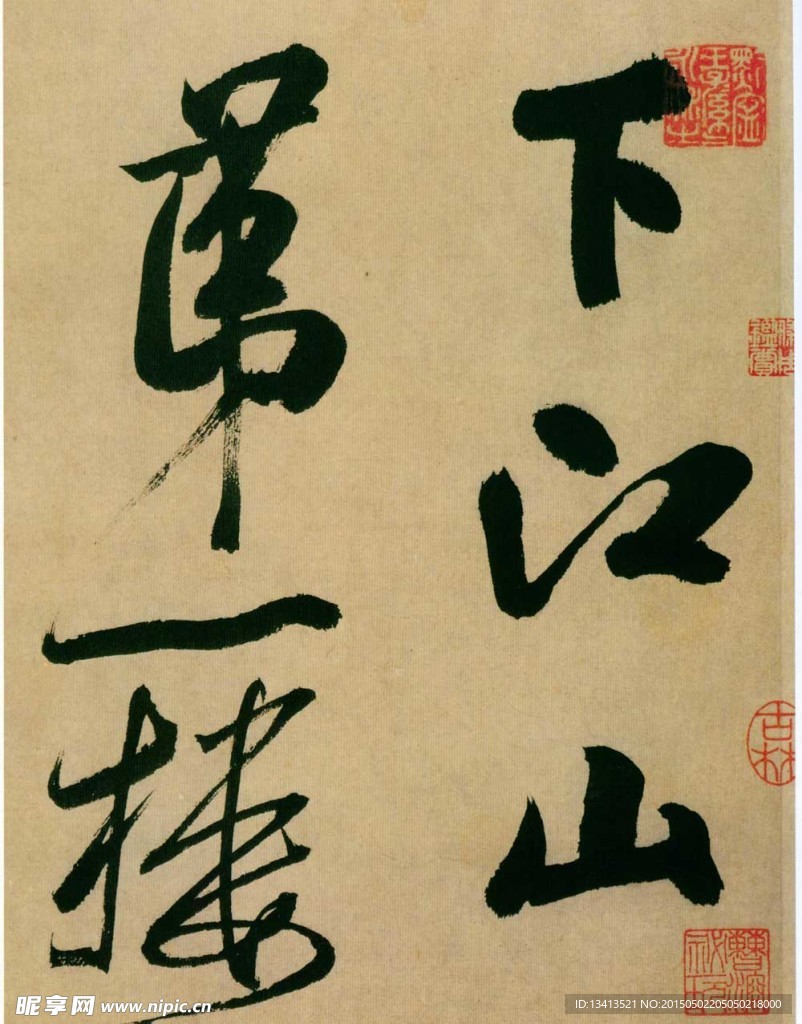 下江山
第一樓
昵享网 www.nipic.cn
ID:13413521 NO:20150502205050218000